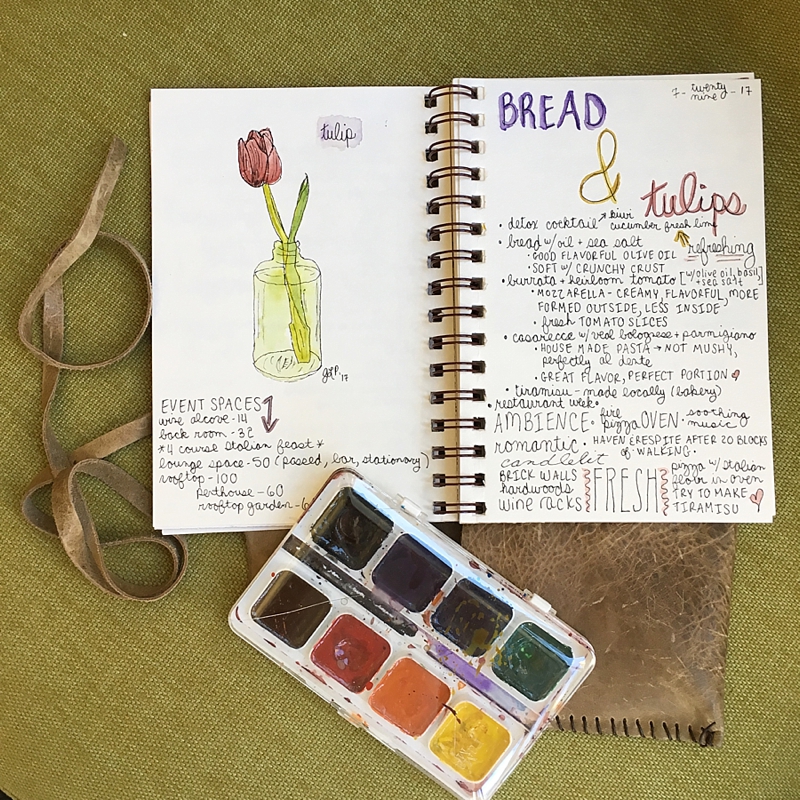 tulip
GLP. '17
EVENT SPACES
wine alcove - 14
back room - 32
*4 course Italian feast*
lounge space - 50 (passed, bar, stationary)
rooftop - 100
penthouse - 60
rooftop garden - 6
7 - twenty nine - 17
BREAD
&
tulips
• detox cocktail → kiwi cucumber fresh lime
refreshing
• bread w/oil + sea salt
• GOOD FLAVORFUL OLIVE OIL
• SOFT w/ CRUNCHY CRUST
• burrata + heirloom tomato [w/olive oil, basil + sea salt]
• MOZZARELLA - CREAMY, FLAVORFUL, MORE
FORMED OUTSIDE, LESS INSIDE
• fresh TOMATO SLICES
• casarecce w/ veal bolognese + parmigiano
• HOUSE MADE PASTA → NOT MUSHY,
perfectly al dente
• GREAT FLAVOR, PERFECT PORTION
• tiramisu - made locally (bakery)
• restaurant week •
AMBIENCE • fire pizza OVEN • soothing music
romantic • HAVEN & RESPITE AFTER 20 BLOCKS
of WALKING •
candlelit
BRICK WALLS
hardwoods
wine racks
FRESH
pizza w/ Italian
flour in oven
TRY TO MAKE
TIRAMISU